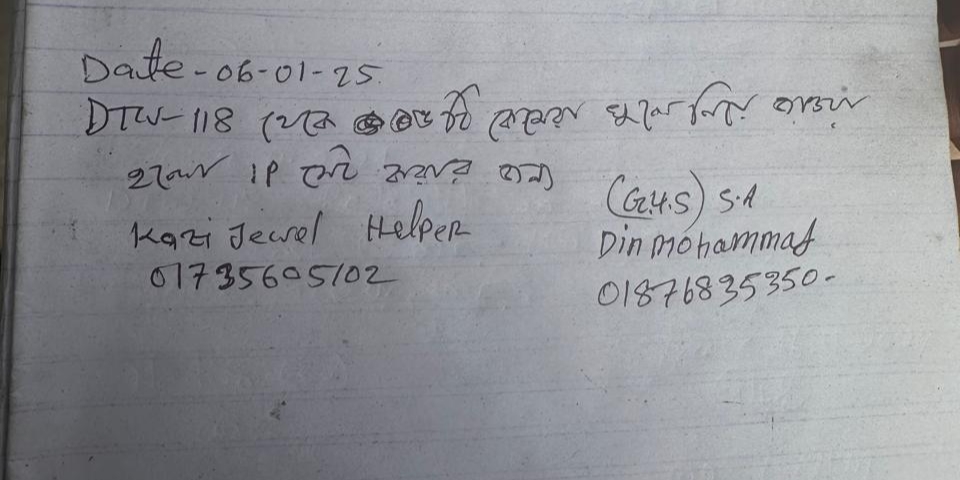 Date-06-01-25
DTW-118 থেকে ০৬ টি কেমেরা খুলে নিয়ে যাওয়া
হলো IP সেট করার জন্য
(G.4.S) S.A
Kazi Jewel Helper
Din mohammad
01735605102
01876835350-